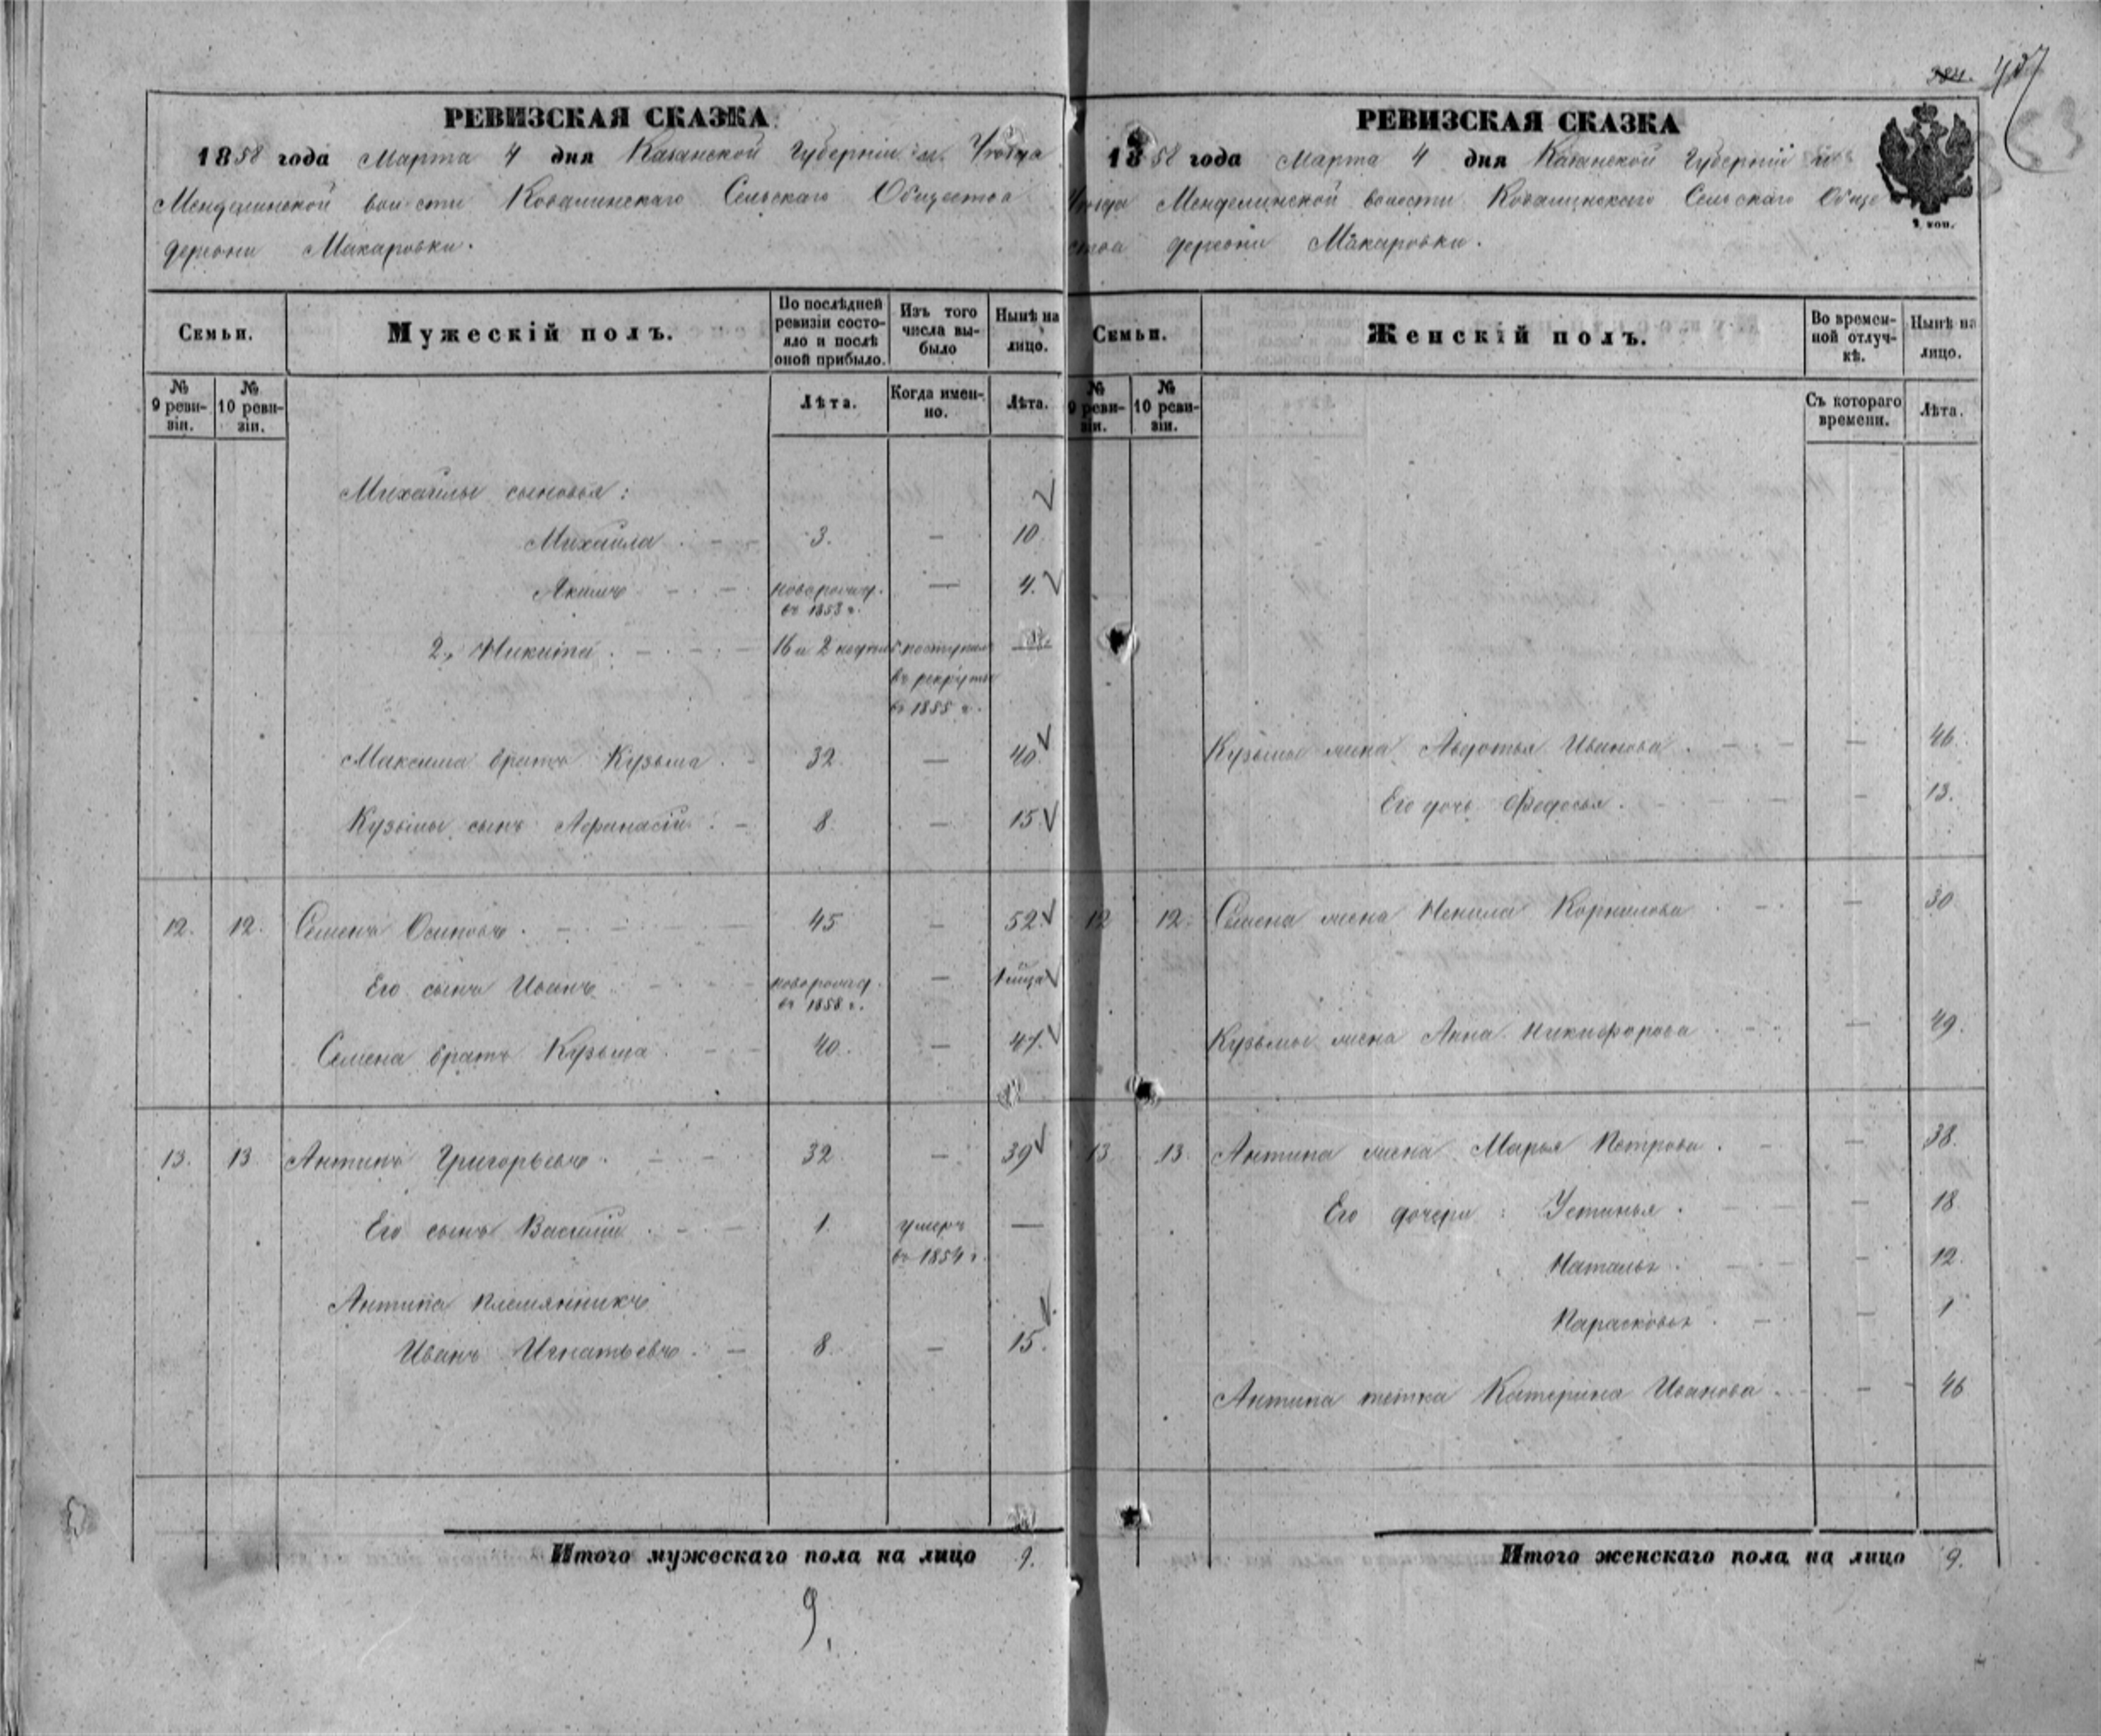 384. 457
РЕВИЗСКАЯ СКАЗКА
1858 года Марта 4 дня Казанской Губерніи и Уѣзда
Менделинской волости Ковалинскаго Сельскаго Общества
деревни Макаровки.
Семьи.
Мужескій полъ.
По послѣдней ревизіи состояло и послѣ оной прибыло.
Изъ того числа выбыло
Нынѣ на лицо.
№ 9 ревизіи.
№ 10 ревизіи.
Лѣта.
Когда именно.
Лѣта.
Михайлы сыновья:
Михайла 3. — 10.
Акимъ новорожд. въ 1853 г. — 4.
2, Никита 16 и 2 поступилъ въ рекруты въ 1855 г.
Максима братъ Кузьма 32. — 40
Кузьмы сынъ Афанасій 8. — 15
12. 12. Семенъ Осиповъ 45 — 52.
Его сынъ Иванъ новорожд. въ 1858 г. — 1 мѣца
Семена братъ Кузьма 40. — 47.
13. 13 Антипъ Григорьевъ 32. — 39
Его сынъ Василій 1. умеръ въ 1854 г. —
Антипа племянникъ
Иванъ Игнатьевъ 8. — 15.
Итого мужескаго пола на лицо 9.
9.
РЕВИЗСКАЯ СКАЗКА
1858 года Марта 4 дня Казанской Губерніи и
Уѣзда Менделинской волости Ковалинскаго Сельскаго Обще
ства деревни Макаровки.
2 коп.
Семьи.
Женскій полъ.
Во временной отлучкѣ.
Нынѣ на лицо.
№ 9 ревизіи.
№ 10 ревизіи.
Съ котораго времени.
Лѣта.
Кузьмы жена Авдотья Иванова — 46.
Его дочь Федосья — 13.
12 12. Семена жена Ненила Корнилова — 30
Кузьмы жена Анна Никифорова — 49.
13. 13. Антипа жена Марья Петрова — 38.
Его дочери: Устинья — 18
Наталья — 12.
Парасковья — 1
Антипа тетка Катерина Иванова — 46
Итого женскаго пола на лицо 9.